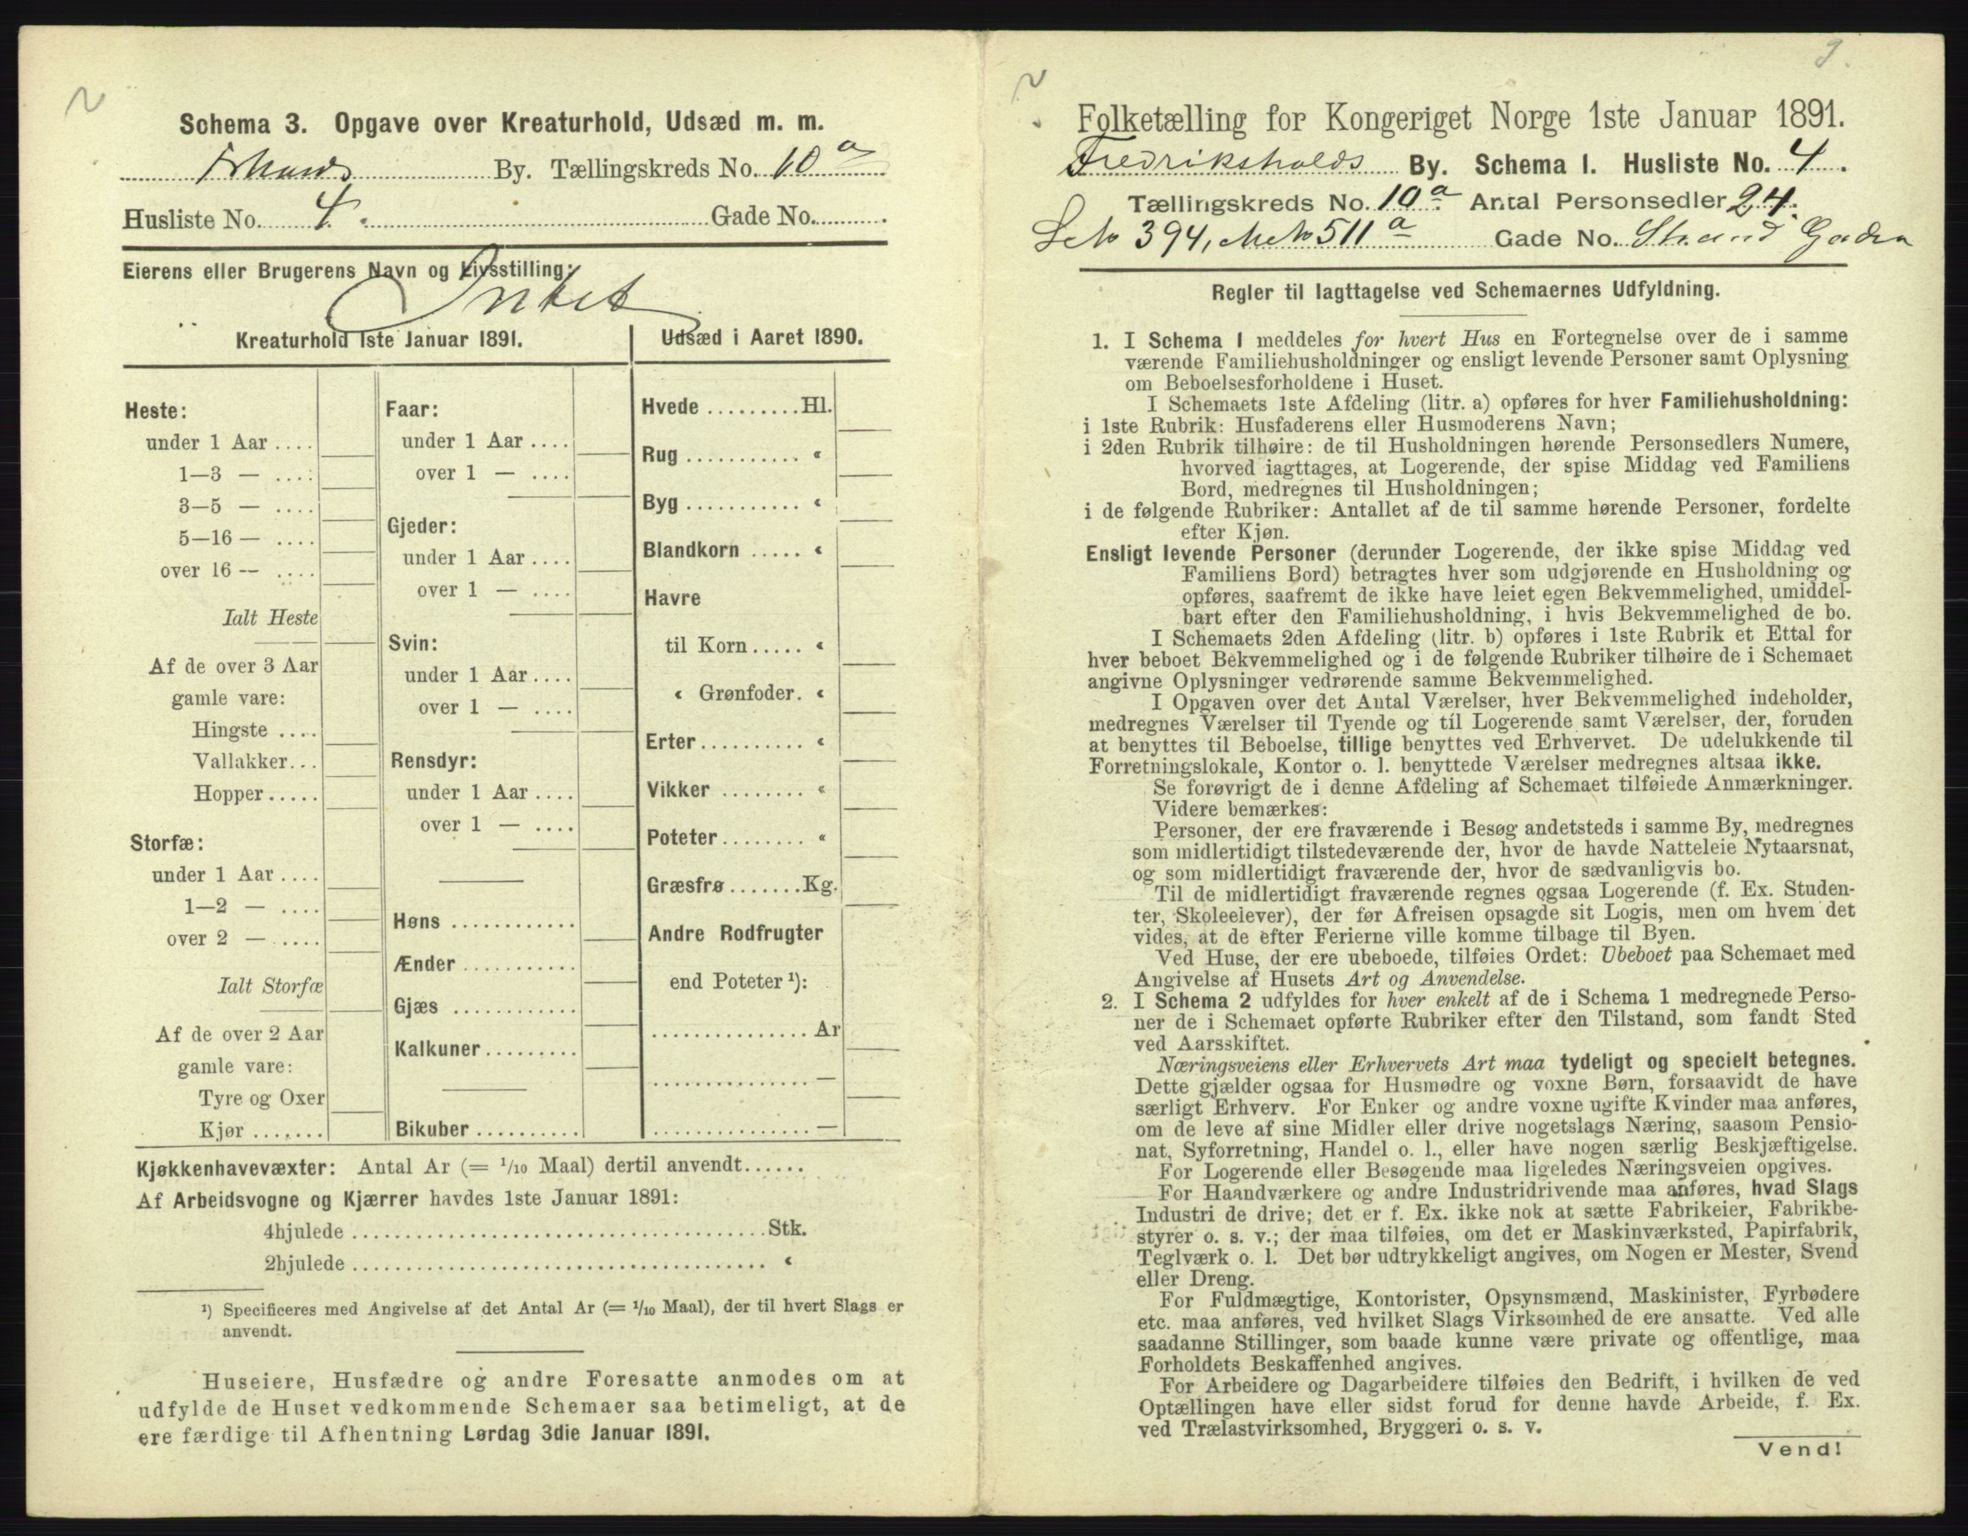 Schema 3. Opgave over Kreaturhold, Udsæd m. m.
By. Tællingskreds No. 10 a
Husliste No. 4. Gade No.
Eierens eller Brugerens Navn og Livsstilling:
Intet
Kreaturhold 1ste Januar 1891.
Heste:
under 1 Aar ....
1—3 — ....
3—5 — ....
5—16 — ....
over 16 — ....
Ialt Heste
Af de over 3 Aar
gamle vare:
Hingste ....
Vallakker...
Hopper.....
Storfæ:
under 1 Aar....
1—2 — ....
over 2 — ....
Ialt Storfæ
Af de over 2 Aar
gamle vare:
Tyre og Oxer
Kjør .......
Faar:
under 1 Aar ....
over 1 — ....
Gjeder:
under 1 Aar ....
over 1 — ....
Svin:
under 1 Aar....
over 1 — ....
Rensdyr:
under 1 Aar ....
over 1 — ....
Høns ............
Ænder ...........
Gjæs ............
Kalkuner.........
Bikuber ..........
Udsæd i Aaret 1890.
Hvede .........Hl.
Rug ........... «
Byg ........... «
Blandkorn ..... «
Havre
til Korn ..... «
« Grønfoder. «
Erter.......... «
Vikker ........ «
Poteter........ «
Græsfrø.......Kg.
Andre Rodfrugter
end Poteter ¹):
............... Ar
............... —
............... —
Kjøkkenhavevæxter: Antal Ar (= 1/10 Maal) dertil anvendt......
Af Arbeidsvogne og Kjærrer havdes 1ste Januar 1891:
4hjulede ......................................Stk.
2hjulede ...................................... «
¹) Specificeres med Angivelse af det Antal Ar (= 1/10 Maal), der til hvert Slags er
anvendt.
Huseiere, Husfædre og andre Foresatte anmodes om at
udfylde de Huset vedkommende Schemaer saa betimeligt, at de
ere færdige til Afhentning Lørdag 3die Januar 1891.
Folketælling for Kongeriget Norge 1ste Januar 1891.
Fredriksholds By. Schema I. Husliste No. 4.
Tællingskreds No. 10 a Antal Personsedler 24.
394, 511 a Gade No. Strand Gaden
Regler til Iagttagelse ved Schemaernes Udfyldning.
1. I Schema 1 meddeles for hvert Hus en Fortegnelse over de i samme
værende Familiehusholdninger og ensligt levende Personer samt Oplysning
om Beboelsesforholdene i Huset.
I Schemaets 1ste Afdeling (litr. a) opføres for hver Familiehusholdning:
i 1ste Rubrik: Husfaderens eller Husmoderens Navn;
i 2den Rubrik tilhøire: de til Husholdningen hørende Personsedlers Numere,
hvorved iagttages, at Logerende, der spise Middag ved Familiens
Bord, medregnes til Husholdningen;
i de følgende Rubriker: Antallet af de til samme hørende Personer, fordelte
efter Kjøn.
Ensligt levende Personer (derunder Logerende, der ikke spise Middag ved
Familiens Bord) betragtes hver som udgjørende en Husholdning og
opføres, saafremt de ikke have leiet egen Bekvemmelighed, umiddel-
bart efter den Familiehusholdning, i hvis Bekvemmelighed de bo.
I Schemaets 2den Afdeling (litr. b) opføres i 1ste Rubrik et Ettal for
hver beboet Bekvemmelighed og i de følgende Rubriker tilhøire de i Schemaet
angivne Oplysninger vedrørende samme Bekvemmelighed.
I Opgaven over det Antal Værelser, hver Bekvemmelighed indeholder,
medregnes Værelser til Tyende og til Logerende samt Værelser, der, foruden
at benyttes til Beboelse, tillige benyttes ved Erhvervet. De udelukkende til
Forretningslokale, Kontor o. l. benyttede Værelser medregnes altsaa ikke.
Se forøvrigt de i denne Afdeling af Schemaet tilføiede Anmærkninger.
Videre bemærkes:
Personer, der ere fraværende i Besøg andetsteds i samme By, medregnes
som midlertidigt tilstedeværende der, hvor de havde Natteleie Nytaarsnat,
og som midlertidigt fraværende der, hvor de sædvanligvis bo.
Til de midlertidigt fraværende regnes ogsaa Logerende (f. Ex. Studen-
ter, Skoleelever), der før Afreisen opsagde sit Logis, men om hvem det
vides, at de efter Ferierne ville komme tilbage til Byen.
Ved Huse, der ere ubeboede, tilføies Ordet: Ubeboet paa Schemaet med
Angivelse af Husets Art og Anvendelse.
2. I Schema 2 udfyldes for hver enkelt af de i Schema 1 medregnede Perso-
ner de i Schemaet opførte Rubriker efter den Tilstand, som fandt Sted
ved Aarsskiftet.
Næringsveiens eller Erhvervets Art maa tydeligt og specielt betegnes.
Dette gjælder ogsaa for Husmødre og voxne Børn, forsaavidt de have
særligt Erhverv. For Enker og andre voxne ugifte Kvinder maa anføres,
om de leve af sine Midler eller drive nogetslags Næring, saasom Pensio-
nat, Syforretning, Handel o. l., eller have nogen særlig Beskjæftigelse.
For Logerende eller Besøgende maa ligeledes Næringsveien opgives.
For Haandværkere og andre Industridrivende maa anføres, hvad Slags
Industri de drive; det er f. Ex. ikke nok at sætte Fabrikeier, Fabrikbe-
styrer o. s. v.; der maa tilføies, om det er Maskinværksted, Papirfabrik,
Teglværk o. l. Det bør udtrykkeligt angives, om Nogen er Mester, Svend
eller Dreng.
For Fuldmægtige, Kontorister, Opsynsmænd, Maskinister, Fyrbødere
etc. maa anføres, ved hvilket Slags Virksomhed de ere ansatte. Ved alle
saadanne Stillinger, som baade kunne være private og offentlige, maa
Forholdets Beskaffenhed angives.
For Arbeidere og Dagarbeidere tilføies den Bedrift, i hvilken de ved
Optællingen have eller sidst forud for denne havde Arbeide, f. Ex.
ved Trælastvirksomhed, Bryggeri o. s. v.
Vend!